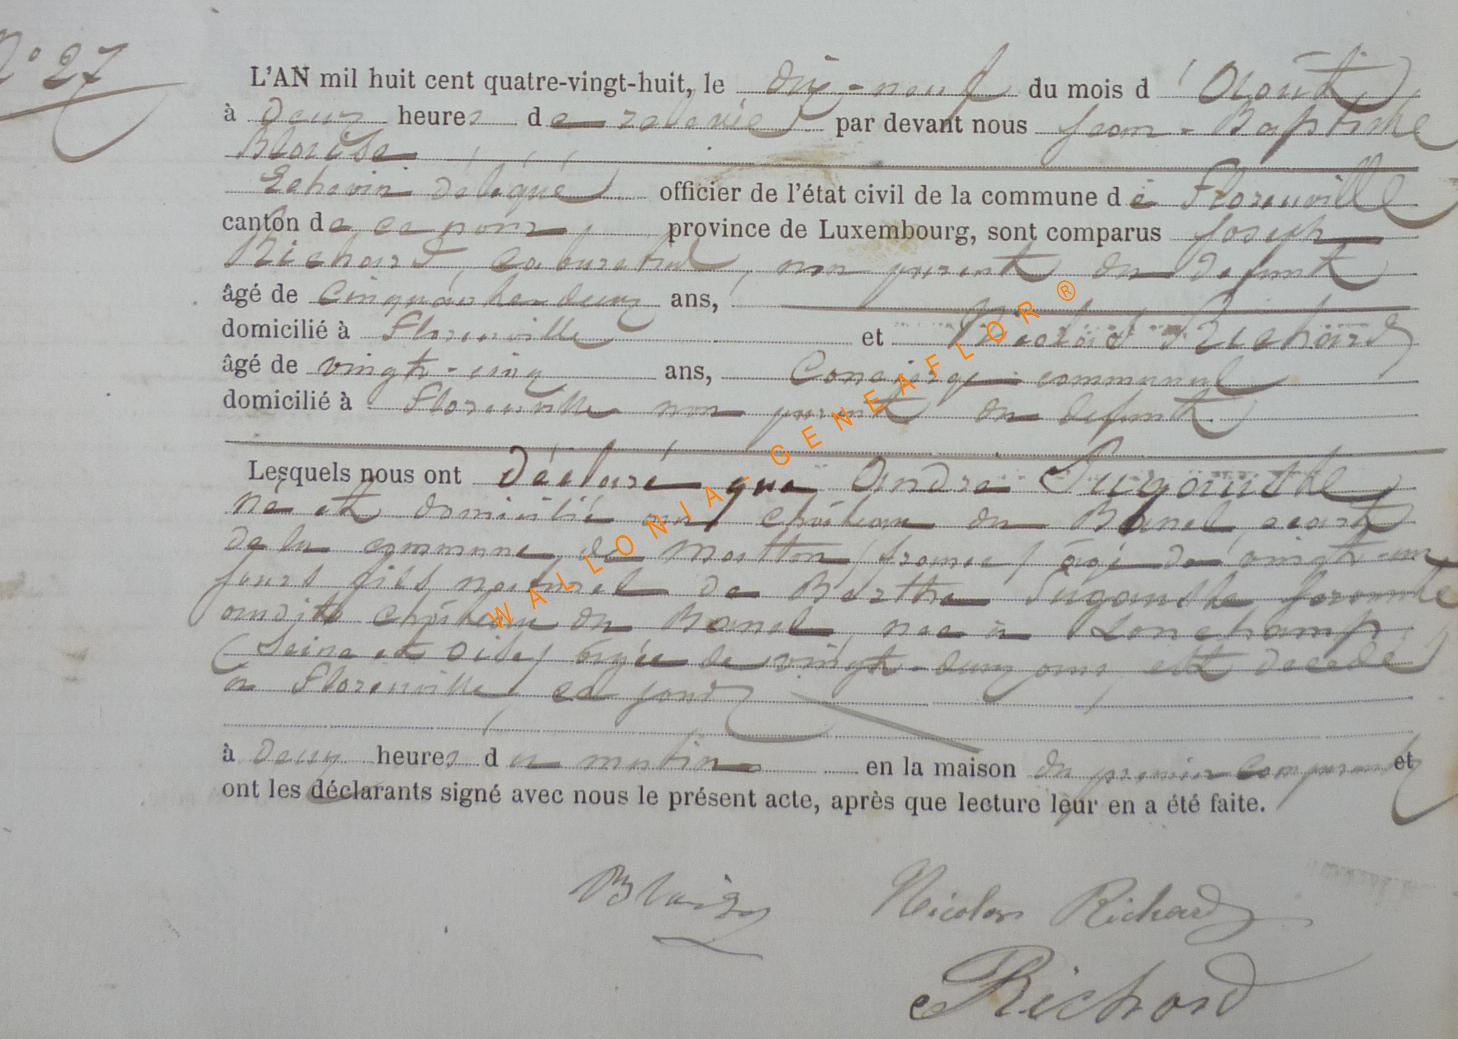 N° 27
L'AN mil huit cent quatre-vingt-huit, le dix-neuf du mois d'Août
à deux heures de relevée par devant nous Jean-Baptiste
Blaise
Echevin délégué officier de l'état civil de la commune de Florenville
canton de ce nom, province de Luxembourg, sont comparus Joseph
Richard, cabaretier, non parent du defunt
âgé de cinquante-deux ans,
domicilié à Florenville et Nicolas Richard
âgé de vingt-cinq ans, Concierge communal
domicilié à Florenville non parent du defunt.
Lesquels nous ont déclaré que André
né et domicilié au château du Banel, écart
de la commune de (france) âgé de vingt-un
jours fils naturel de Berthe servante
audit château du Banel, née à Lonchamp
(Seine et Oise) âgée de vingt-deux ans, est décédé
à Florenville, ce jour
à deux heures du matin en la maison du premier comparant et
ont les déclarants signé avec nous le présent acte, après que lecture leur en a été faite.
Blaise Nicolas Richard
Richard
WALLONIA-GENEAFLOR ®